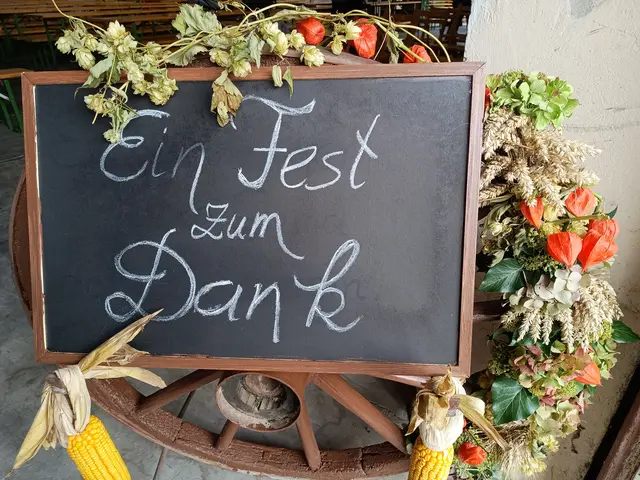 Ein Fest
zum
Dank